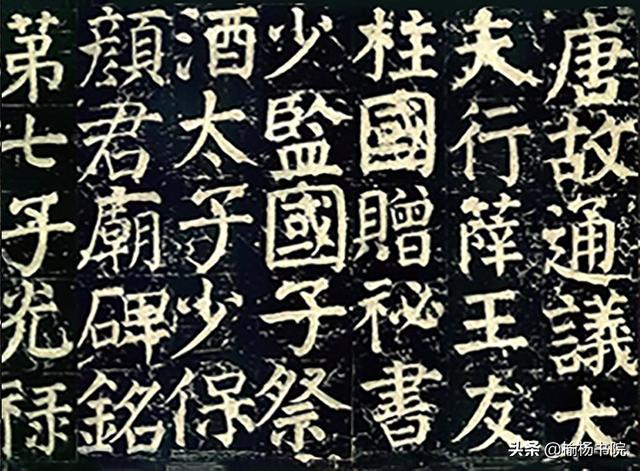 唐故通議大
夫行薛王友
柱國贈祕書
少監國子祭
酒太子少保
顏君廟碑銘
第七子光祿
头条 @榆杨书院